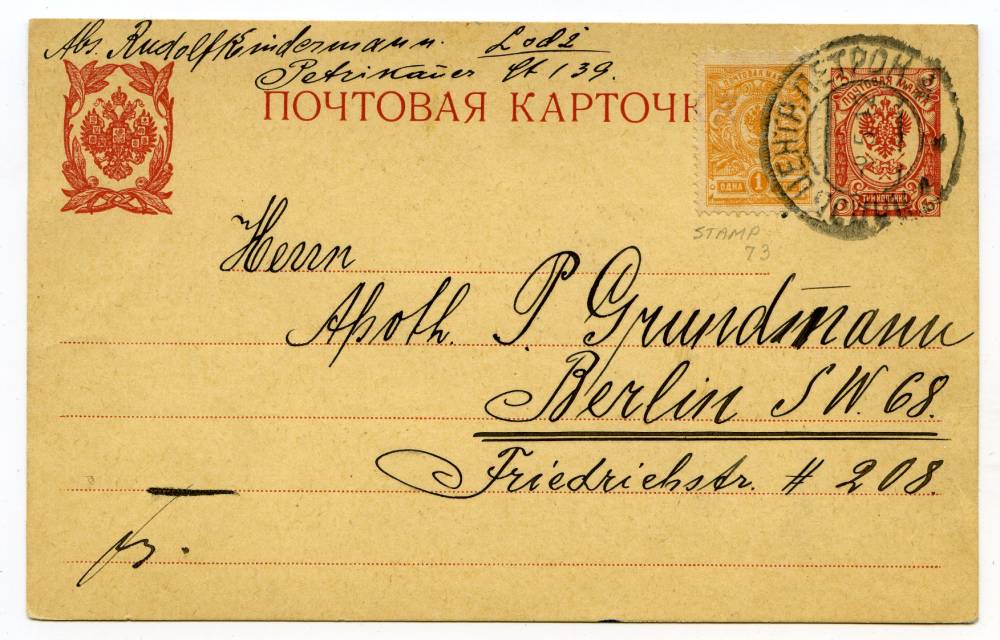 Abs. Rudolf Kindermann. Lodz
Petrikauer St 139.
ПОЧТОВАЯ КАРТОЧК
ПОЧТОВАЯ МАРКА
ОДНА 1
3 3
ПОЧТОВАЯ МАРКА
ТРИ КОПѢЙКИ
STAMP
73
Herrn
Apoth. P. Grundmann
Berlin S W. 68.
Friedrichstr. # 208.